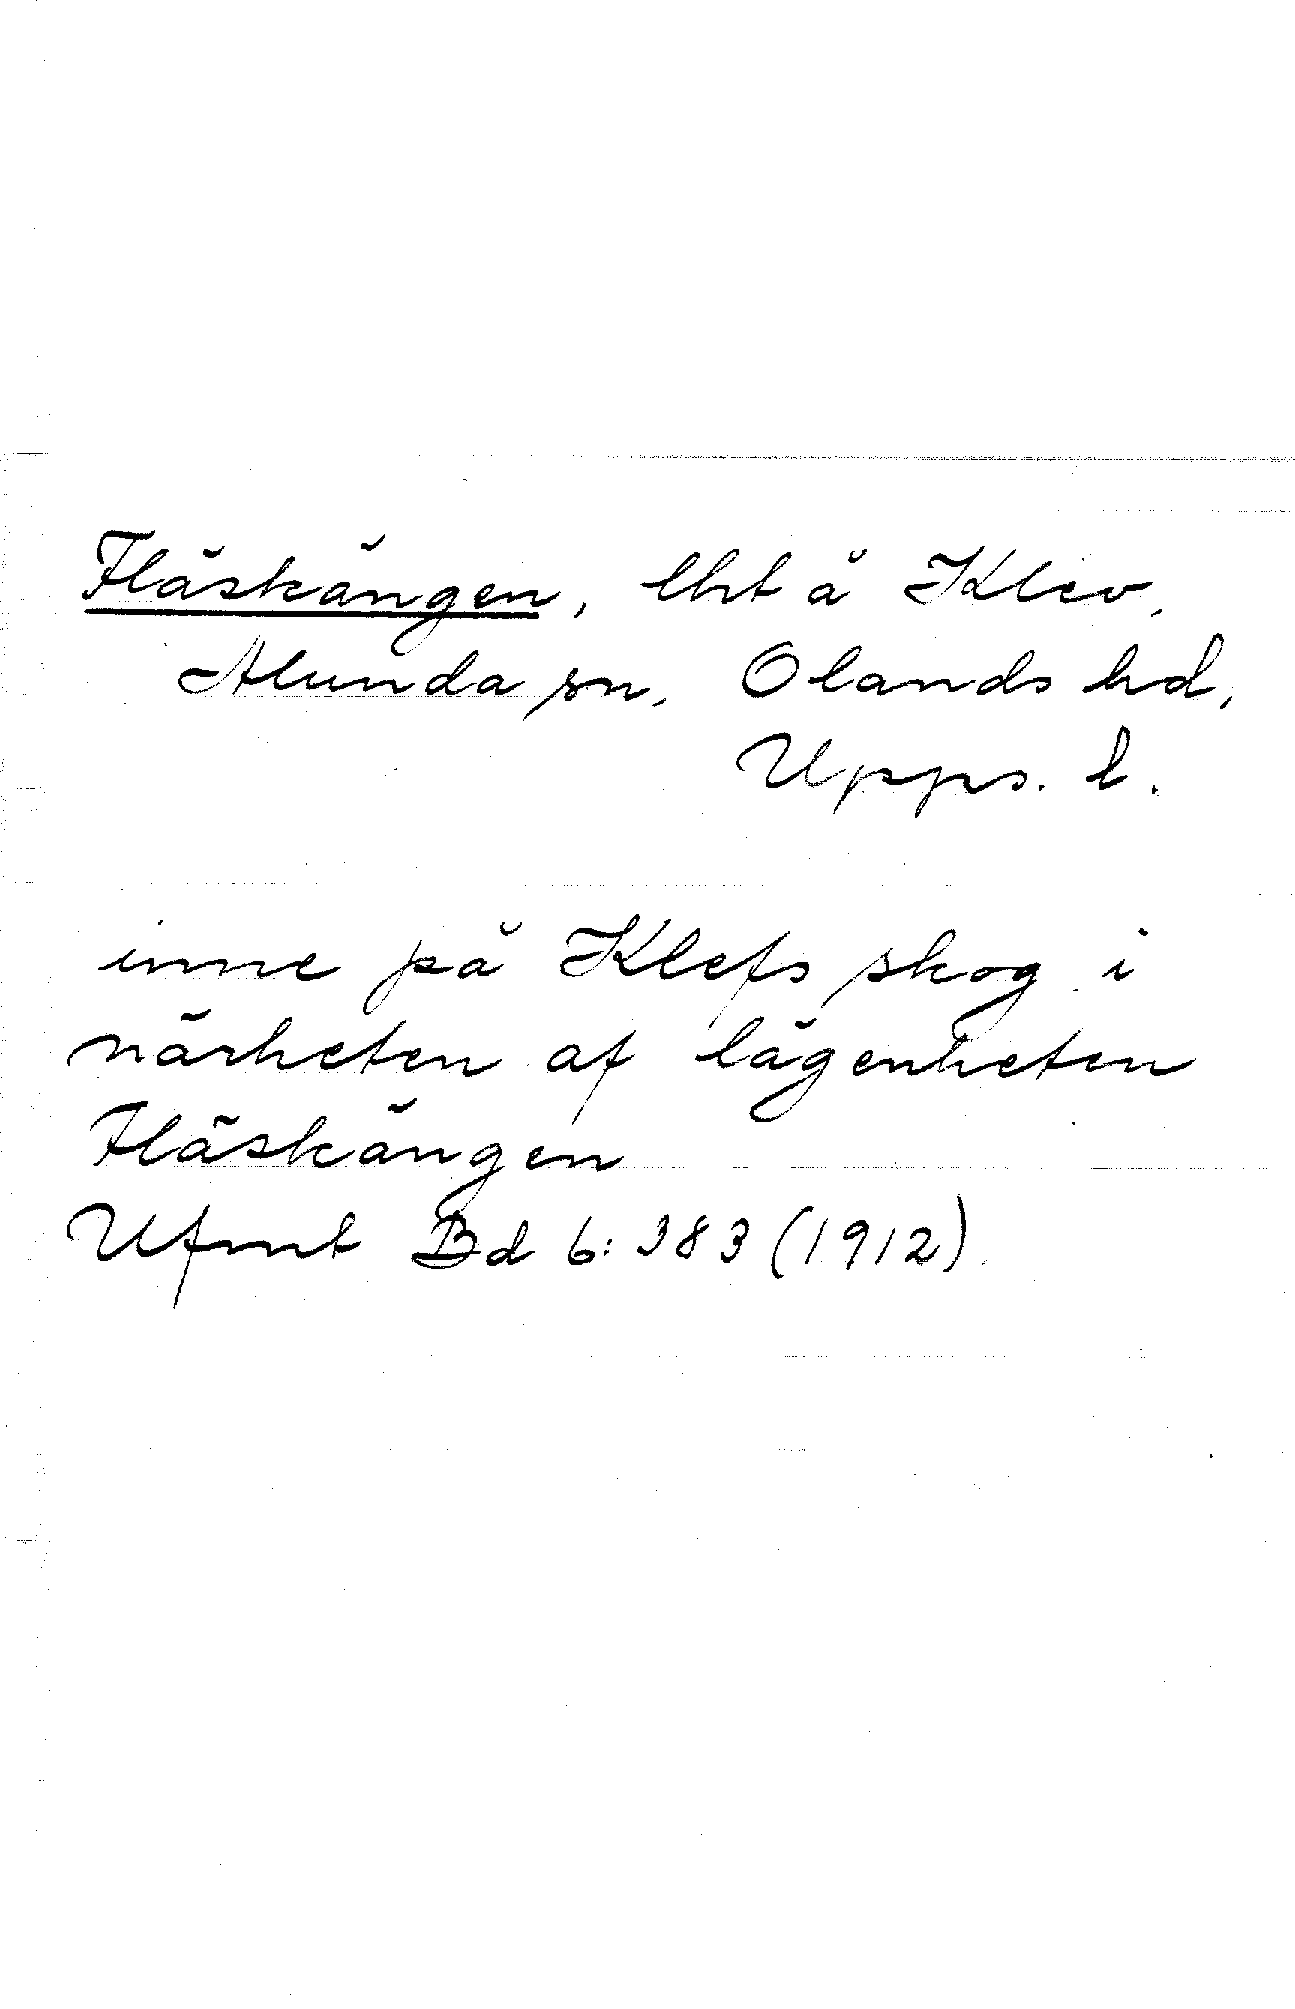 Fläskängen, lht å Klev,
Alunda sn, Olands hd,
Upps. l.
inne på Klefs skog i
närheten af lägenheten
Fläskängen
Ufmt Bd 6: 383 (1912).